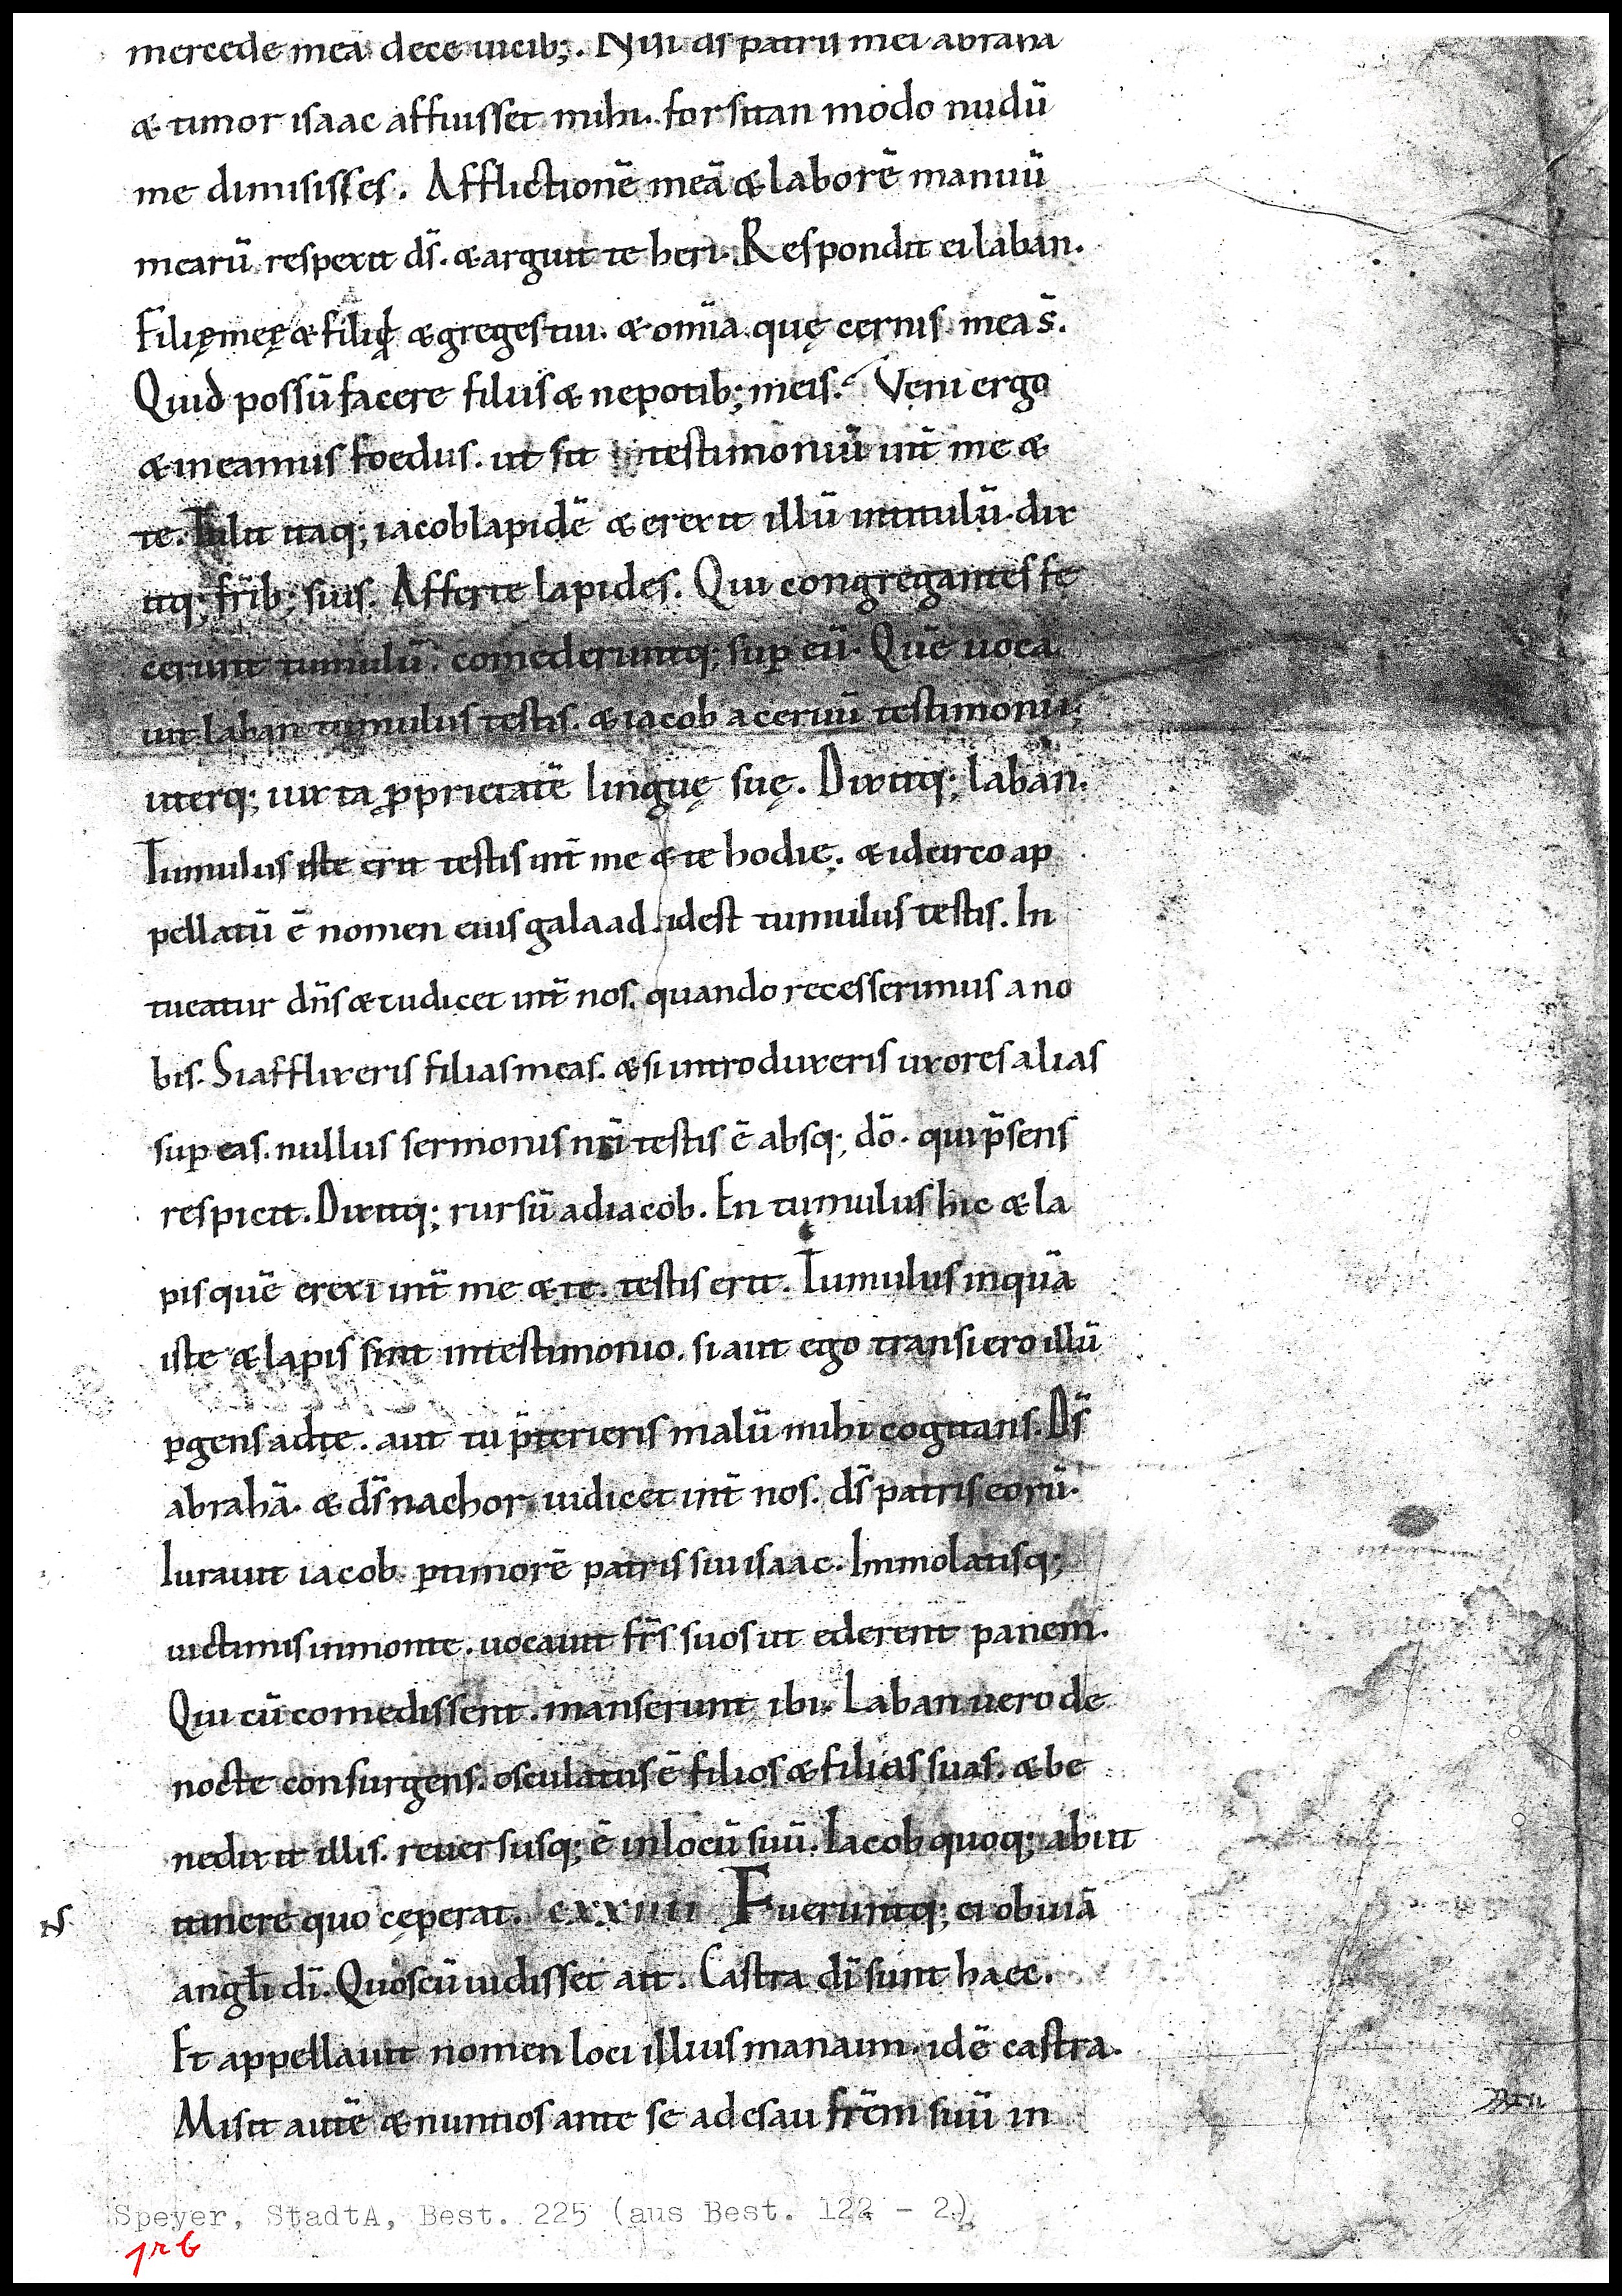 mercede meā dece uicib;. Nisi ds̄ patris mei abrahā
& timor isaac affuisset mihi. forsitan modo nudū
me dimisisses. Afflictionē meā & laborē manuū
mearū respexit ds̄. & arguit te heri. Respondit ei laban.
Filię męę & filii & greges tui. & om̄ia quę cernis mea s̄.
Quid possū facere filiis & nepotib; meis? Veni ergo
& ineamus foedus. ut sit testimoniū int̄ me &
te. Tulit itaq; iacob lapidē & erexit illū intitulū. dix
itq; fr̄ib; suis. Afferte lapides. Qui congregantes fe
cerunt tumulū. comederuntq; sup eū. Quē uoca
uit laban tumulus testis. & iacob aceruū testimonii;
uterq; iuxta ꝓprietatē linguę suę. Dixitq; laban.
Tumulus iste erit testis int̄ me & te hodie. & idcirco ap
pellatū ē nomen eius galaad. idest tumulus testis. In
tueatur dn̄s & iudicet int̄ nos. quando recesserimus a no
bis. Si afflixeris filias meas. & si introduxeris uxores alias
sup eas. nullus sermonis nr̄i testis ē absq; dō. qui p̄sens
respicit. Dixitq; rursū ad iacob. En tumulus hic & la
pis quē erexi int̄ me & te. testis erit. Tumulus inquā
iste & lapis sint intestimonio. si aut ego transiero illū
ꝑgens adte. aut tu p̄terieris malū mihi cogitans. Ds̄
abrahā. & ds̄ nachor. iudicet int̄ nos. ds̄ patris eorū.
Iurauit iacob ꝑ timorē patris sui isaac. Immolatisq;
uictimis inmonte. uocauit fr̄s suos ut ederent panem.
Qui cū comedissent. manserunt ibi. Laban uero de
nocte consurgens. osculatus ē filios & filias suas. & be
nedixit illis. reuersusq; ē inlocū suū. Iacob quoq; abiit
itinere quo cęperat. cxxiiii Fueruntq; ei obuiā
angl̄i dī. Quos cū uidisset ait. Castra dī sunt haec.
Et appellauit nomen loci illius manaim. idē castra.
Misit autē & nuntios ante se ad esau fr̄em suū in
Speyer, StadtA, Best. 225 (aus Best. 122 - 2)
1rb